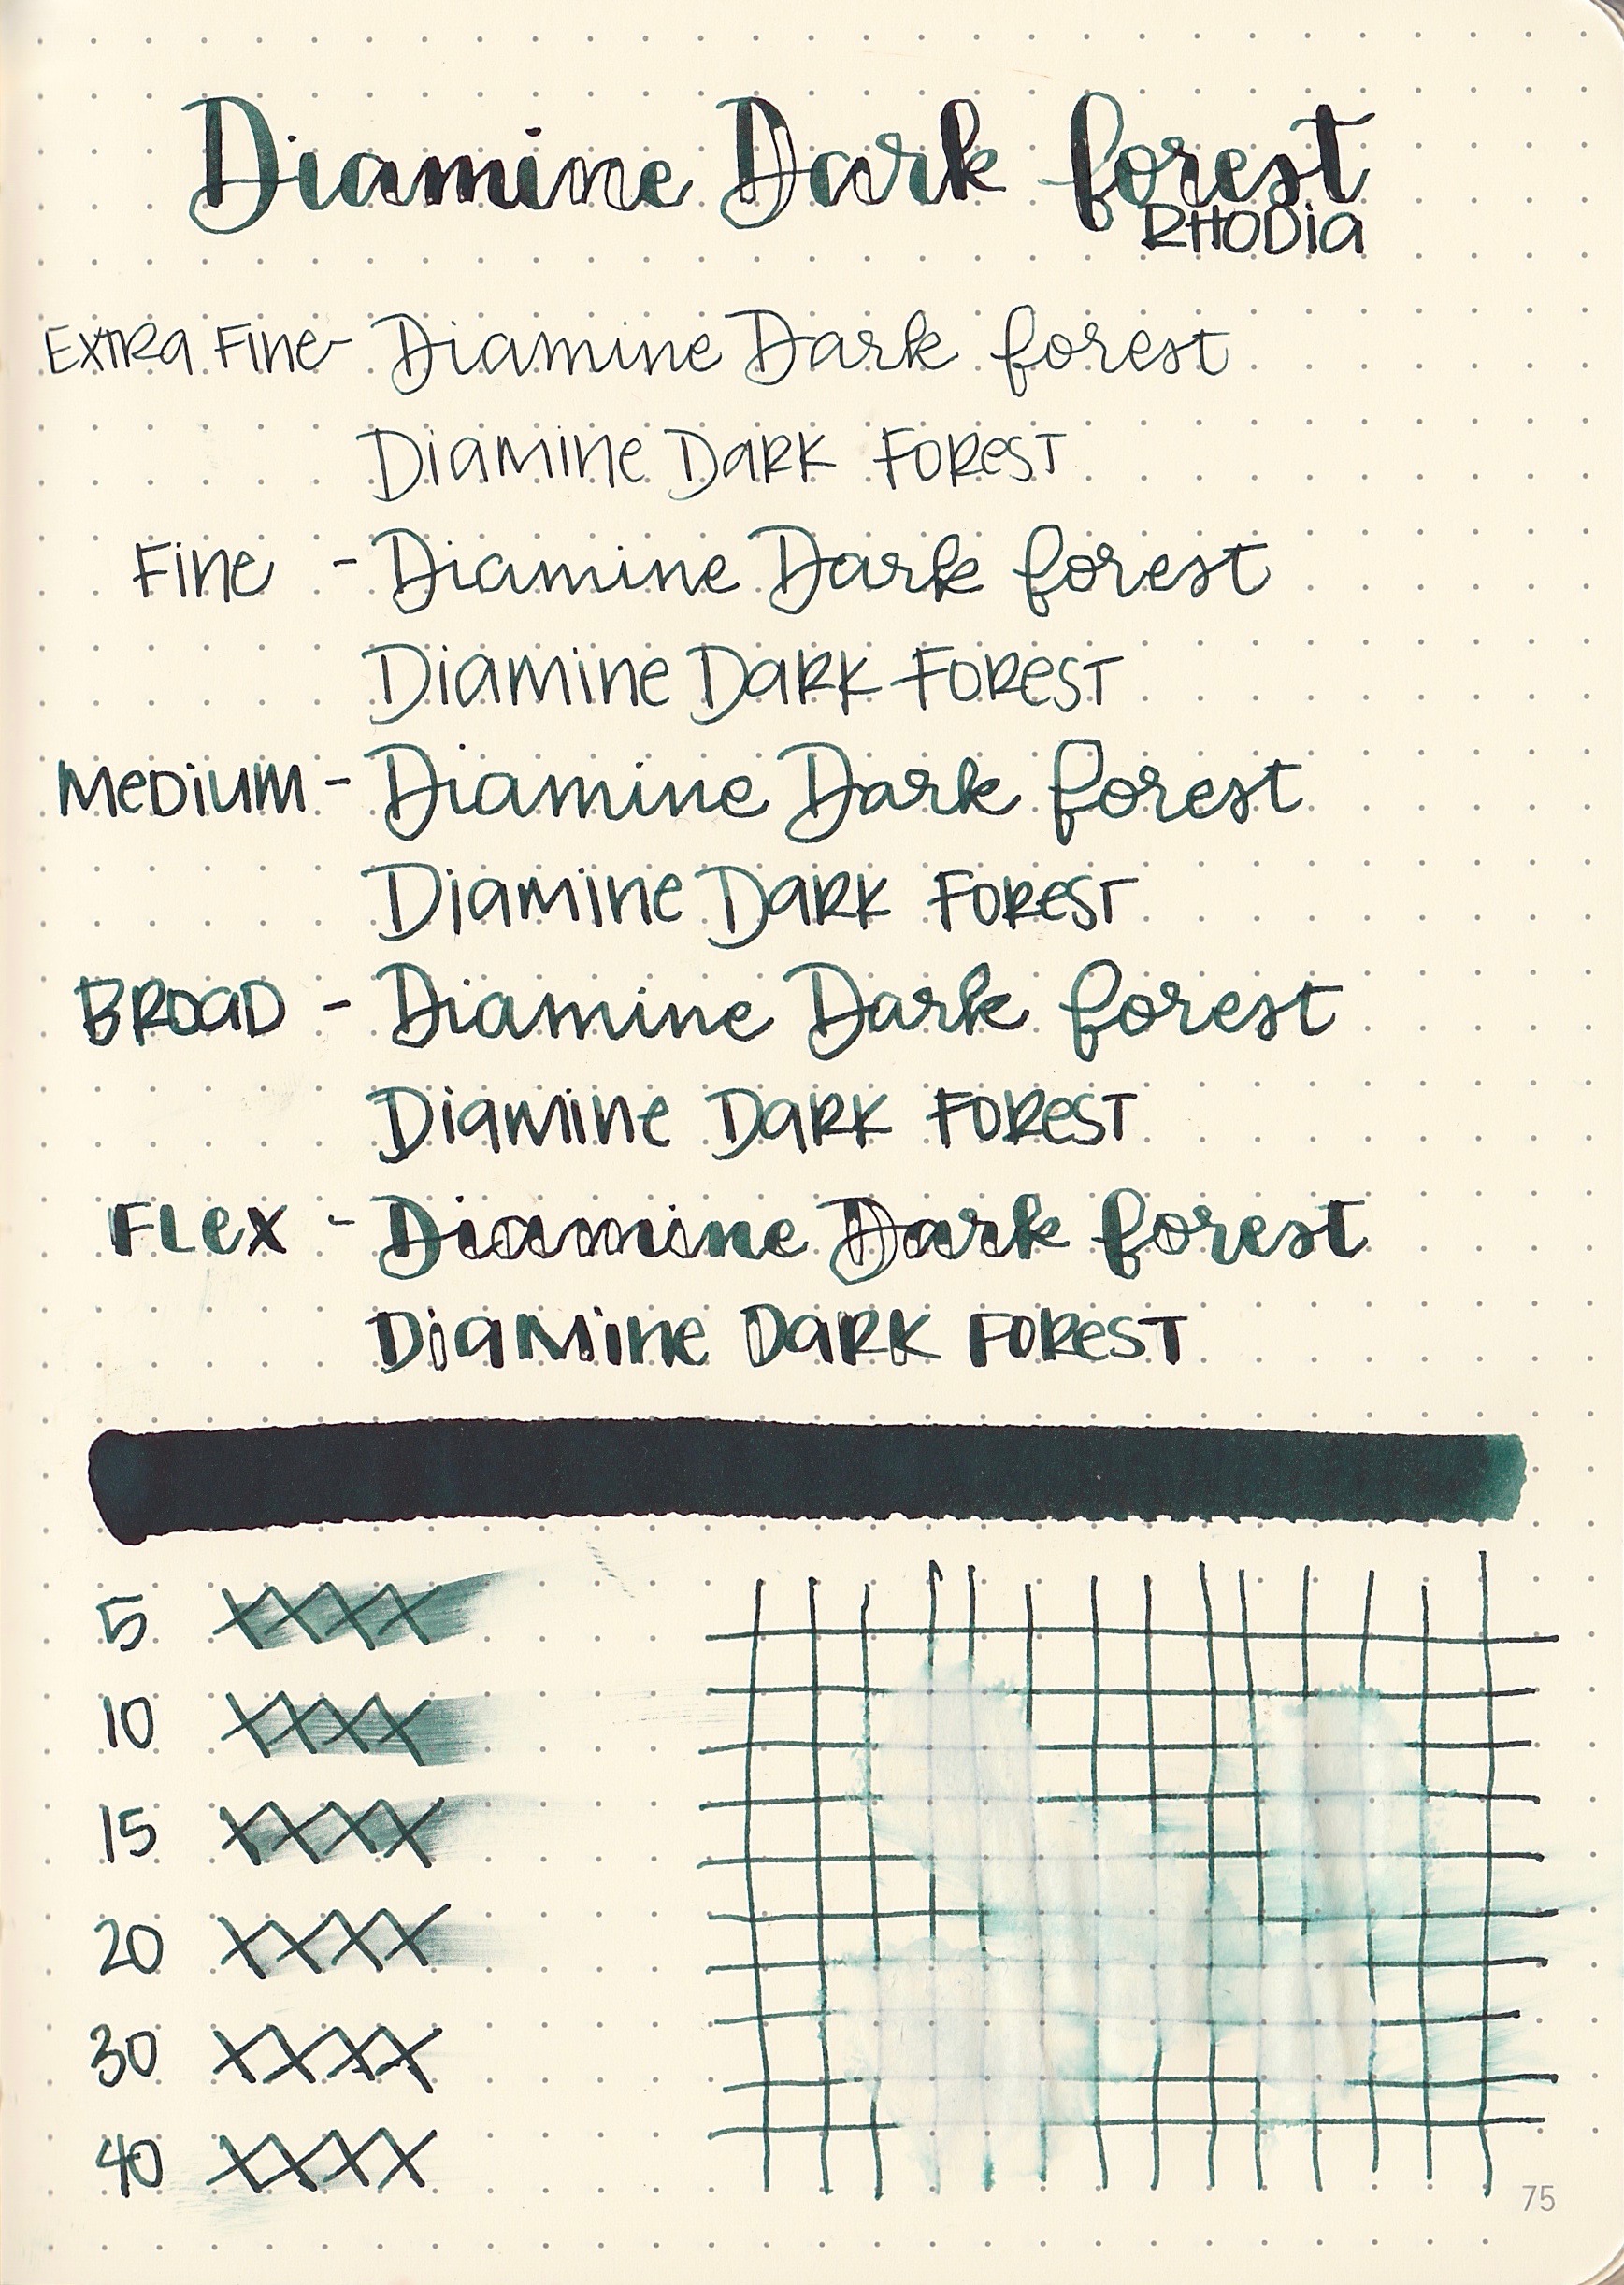 Diamine Dark forest
RHODia
EXTRa Fine - Diamine Dark forest
DiaMine DaRK FOResT
Fine - Diamine Dark forest
DiaMine DaRK FOResT
MeDiuM - Diamine Dark forest
DiaMine DaRK FOResT
BROaD - Diamine Dark forest
DiaMine DaRK FOResT
FLeX - Diamine Dark forest
DiaMine DaRK FOResT
5 XXXX
10 XXXX
15 XXXX
20 XXXX
30 XXXX
40 XXXX
75